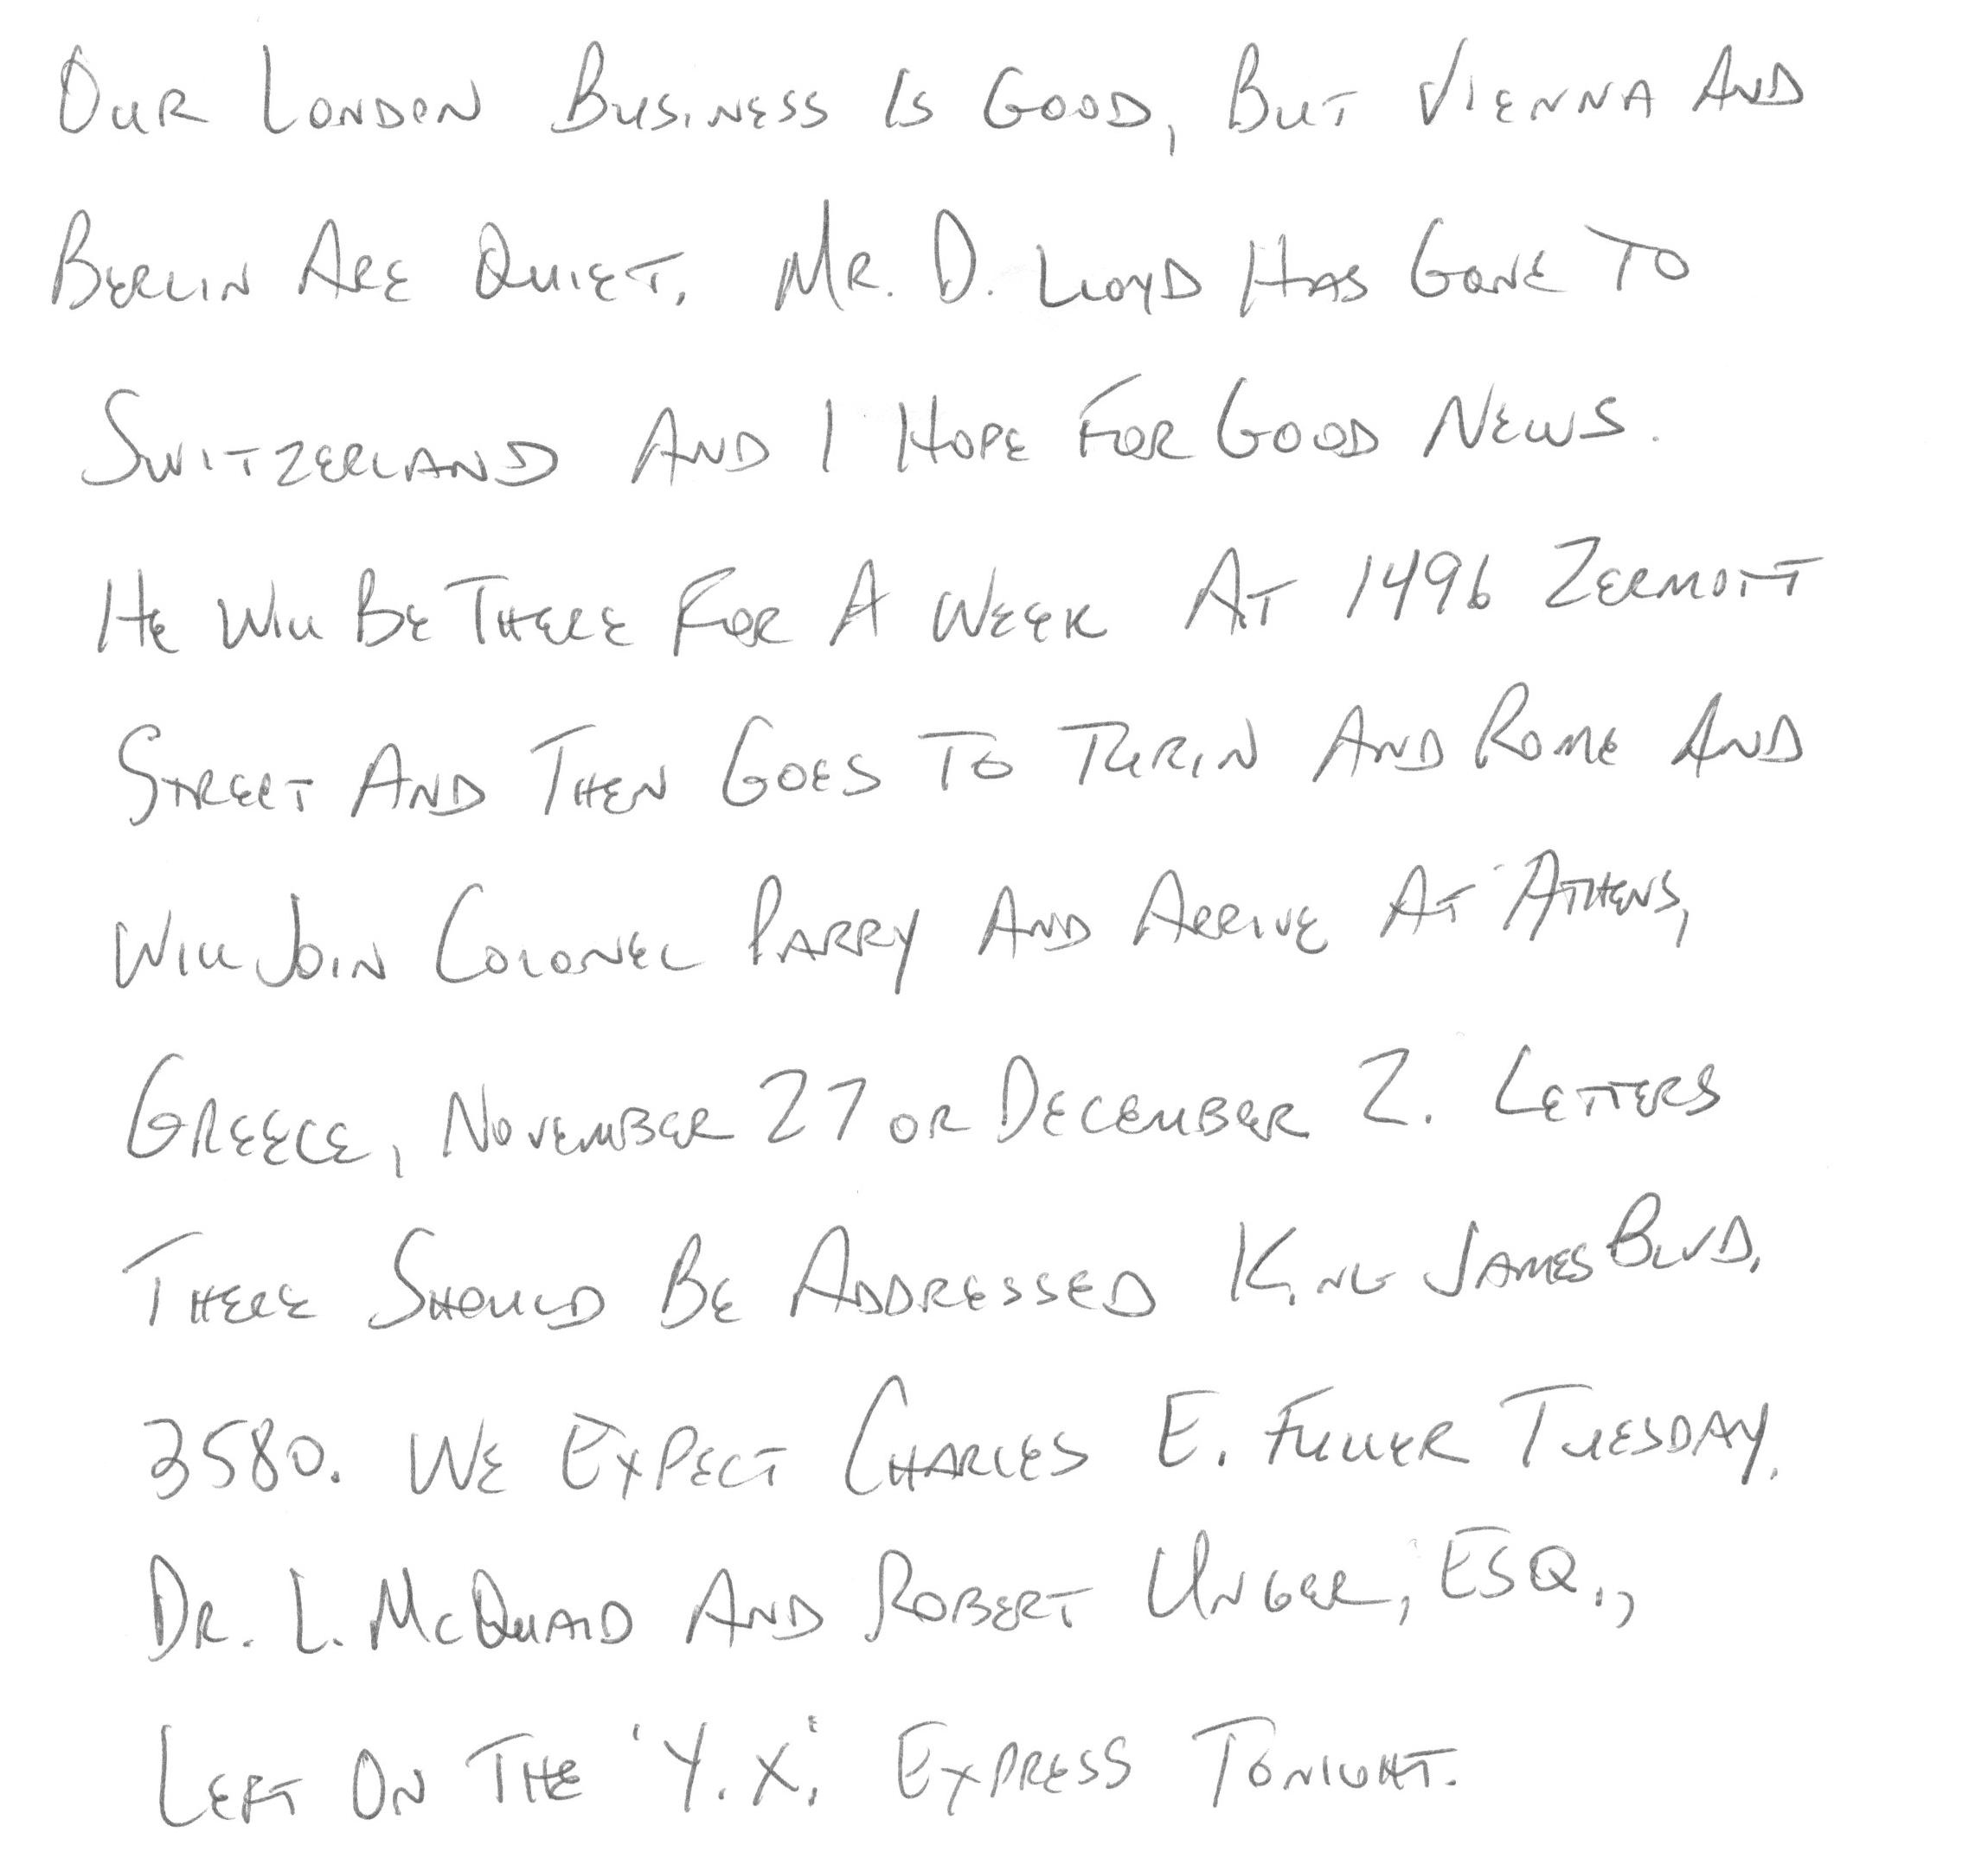 Our London Business Is Good, But Vienna And
Berlin Are Quiet. Mr. D. Lloyd Has Gone To
Switzerland And I Hope For Good News.
He Will Be There For A Week At 1496 Zermott
Street And Then Goes To Turin And Rome And
Will Join Colonel Parry And Arrive At Athens,
Greece, November 27 or December 2. Letters
There Should Be Addressed King James Blvd.
3580. We Expect Charles E. Fuller Tuesday.
Dr. L. McQuaid And Robert Unger, Esq.,
Left On The 'Y.X.' Express Tonight.